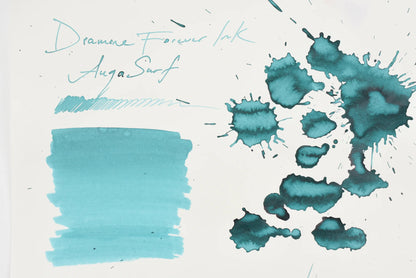 Diamine Forever Ink
Auqa Surf